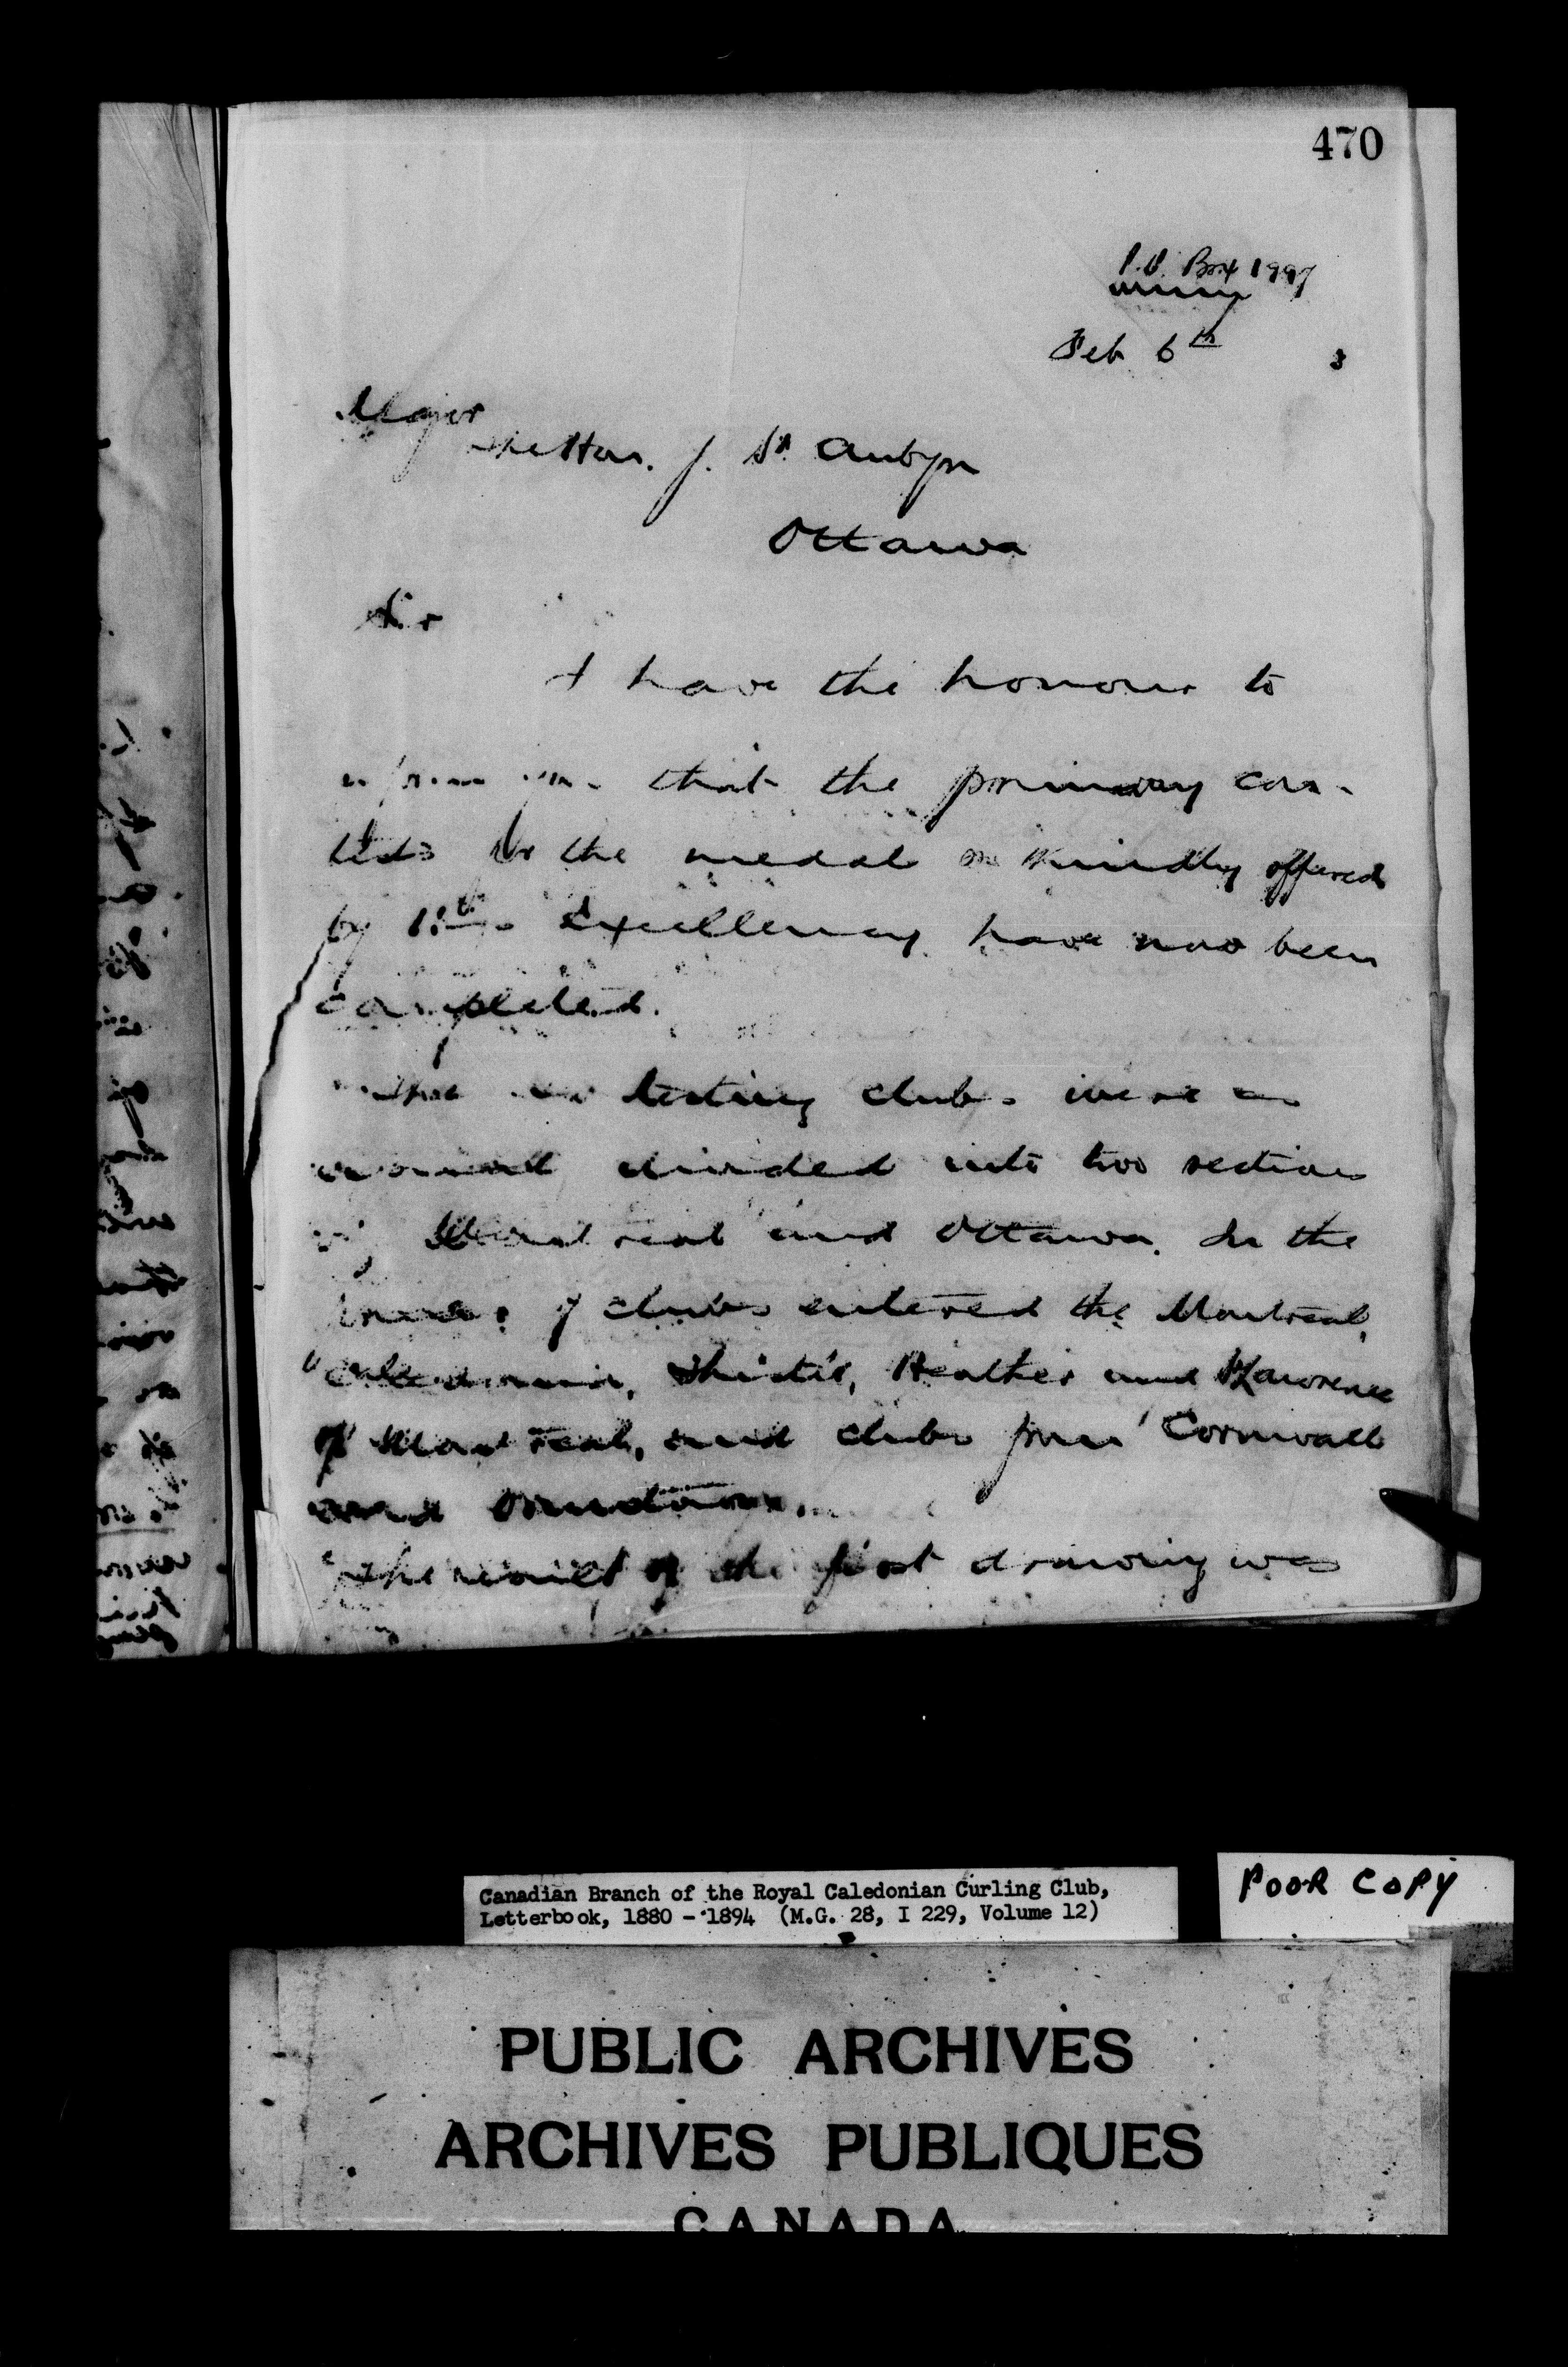 470
P.O. Box 1997
Feb 6th 3
Major
The Hon. J. St Aubyn
Ottawa
Sir
I have the honour to
inform you that the primary con-
tests for the medal so kindly offered
by His Excellency have now been
completed.
The contesting clubs were as
usual divided into two sections
viz Montreal and Ottawa. In the
of clubs entered the Montreal,
Caledonia, Thistle, Heather and St Lawrence
of Montreal, and clubs from Cornwall
and Ormstown.
The result of the first drawing was
Canadian Branch of the Royal Caledonian Curling Club,
Letterbook, 1880 - 1894 (M.G. 28, I 229, Volume 12)
POOR COPY
PUBLIC ARCHIVES
ARCHIVES PUBLIQUES
CANADA